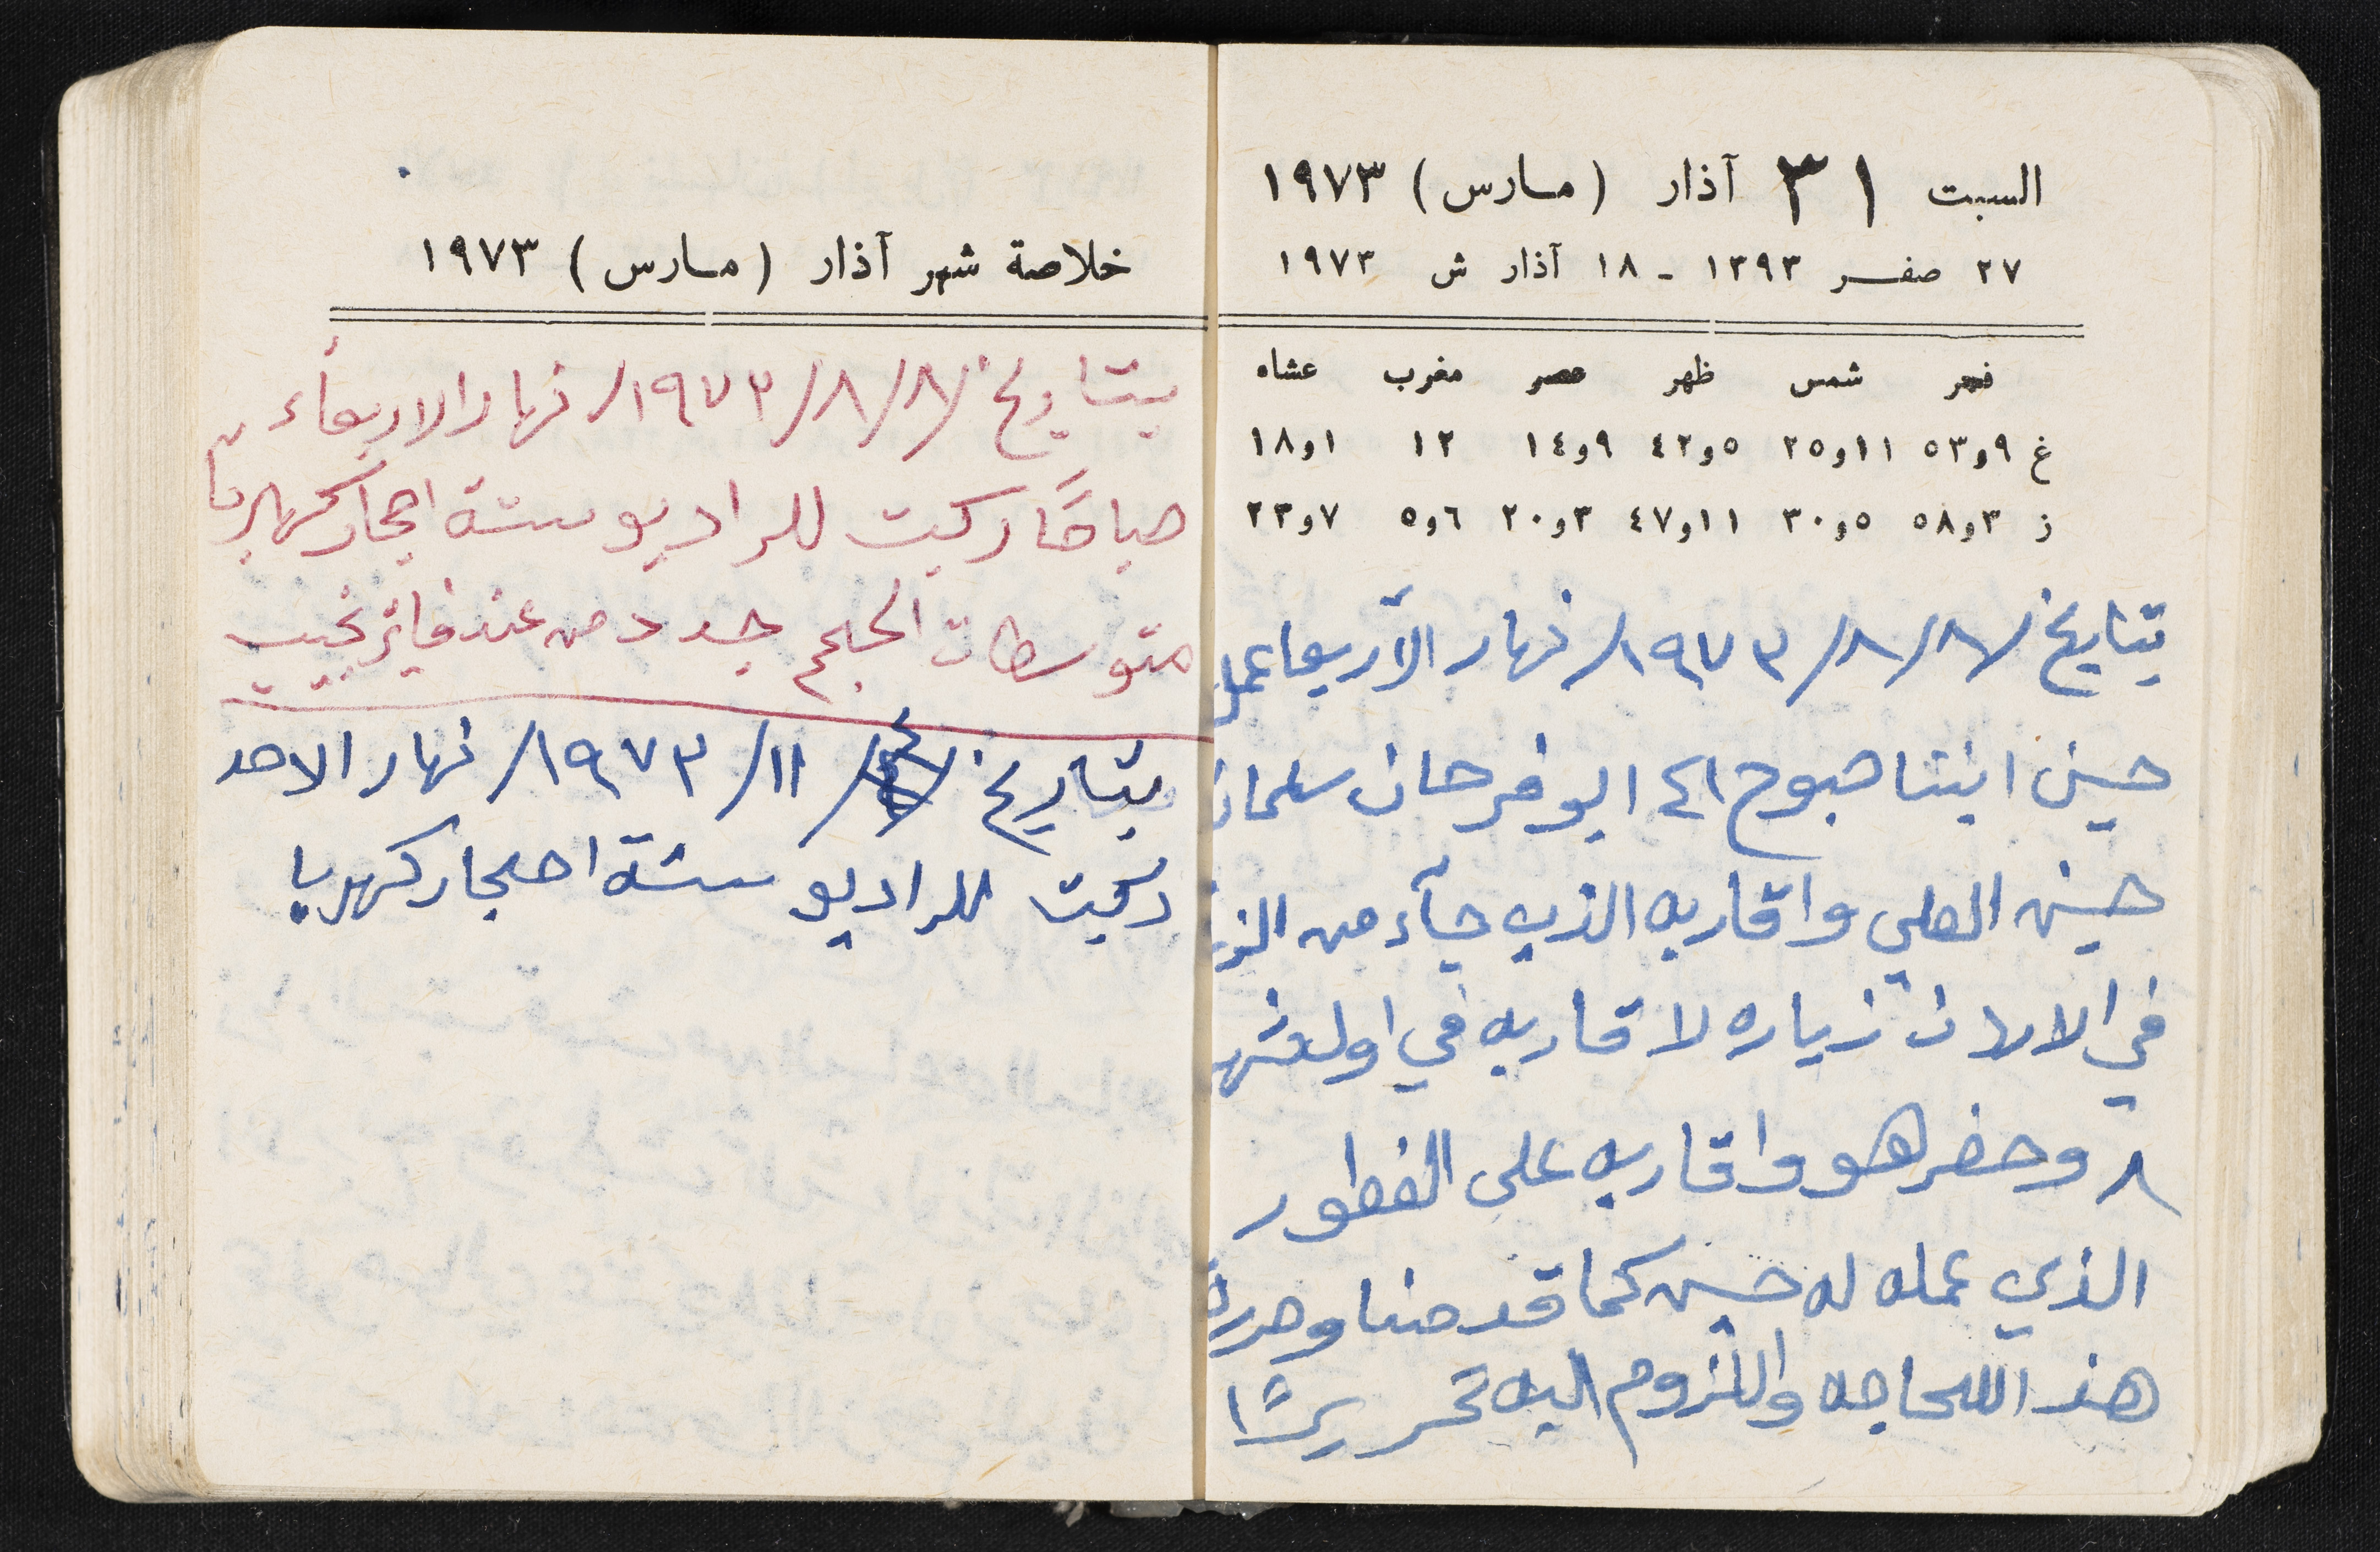 السبت ٣١ آذار (مارس) ١٩٧٣
٢٧ صفر ١٣٩٣ - ١٨ آذار ش ١٩٧٣
فجر شمس ظهر عصر مغرب عشاه
غ ٩و٥٣ ١١و٢٥ ٥و٤٢ ٩و١٤ ١٢ ١و١٨
ز ٣و٥٨ ٥و٣٠ ١١و٤٧ ٣و٢٠ ٦و٥ ٧و٢٣
بتايخ /٨/٨/١٩٧٣/ نهار الآربعا عمل
حسن ابننا صبوح الى ابو فرحان سلمان
حسن العلي واقاربه الذي جآء من
في الاول زياره لاقاربه في اول شهر
٨ وحضر هو واقاربه على الفطور
الذي عمله له حسن كما قدمنا وحررت
هذ اللحاجه واللزوم اليه تحريرًا
خلاصة شهر آذار (مارس) ١٩٧٣
بتاريخ /٨/٨/١٩٧٣/ نهار الاربعأء
صباحًا ركبت للراديو ستة احجار كهربا
متوسطات الحجم جدد من عند فايز نجيب
بتاريخ /٤/١١/١٩٧٣/ نهار الاحد
ركبت للراديو ستة احجار كهربا